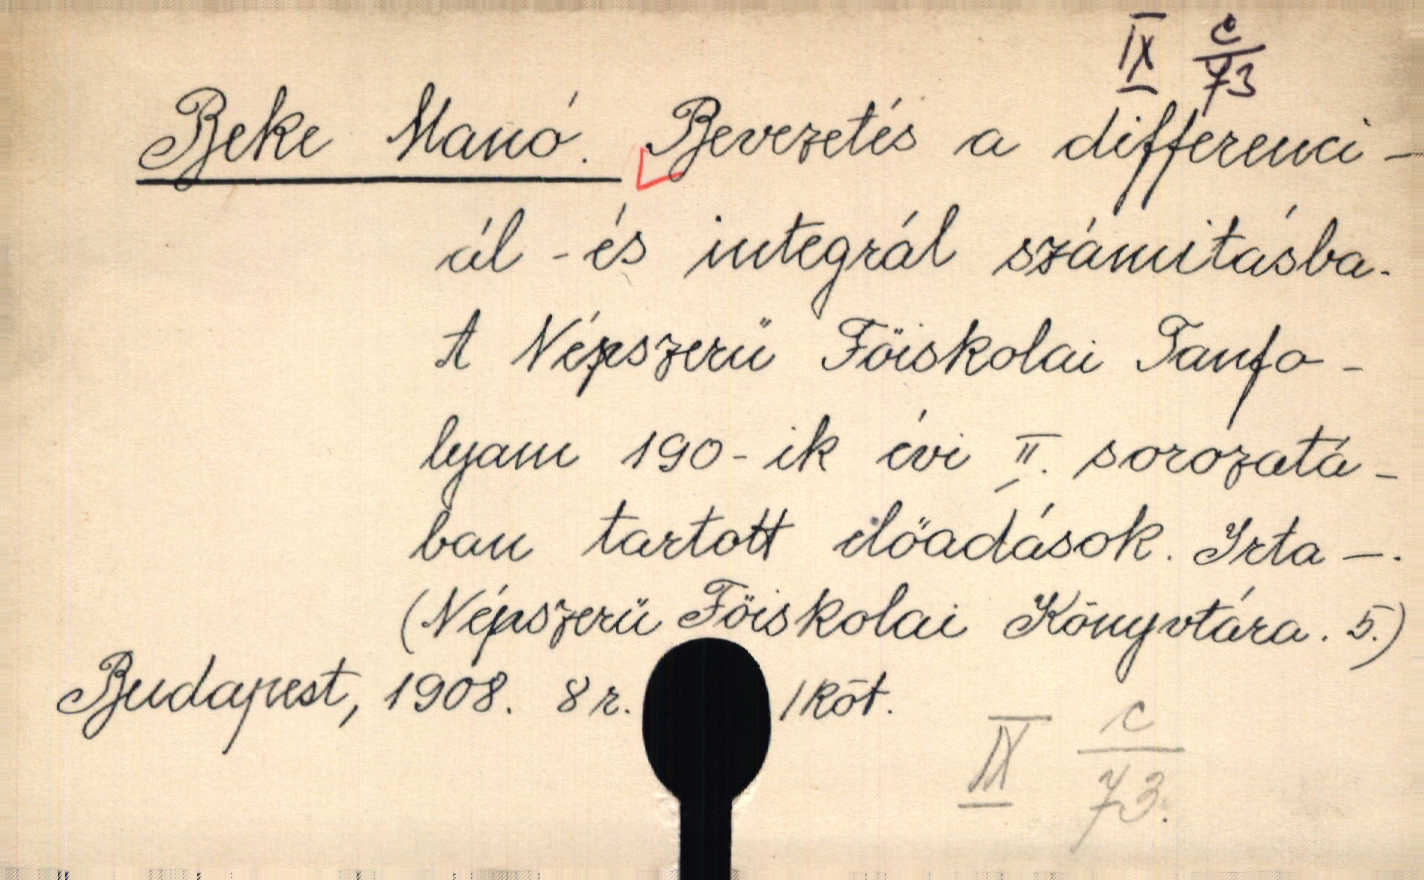 IX c/73
Beke Manó. Bevezetés a differenci-
ál - és integrál számitásba.
A Népszerű Főiskolai Tanfo-
lyam 190-ik évi II. sorozatá-
ban tartott előadások. Irta —.
(Népszerű Főiskolai Könyvtára. 5.)
Budapest, 1908. 8 r. 1 köt.
IX c/73.